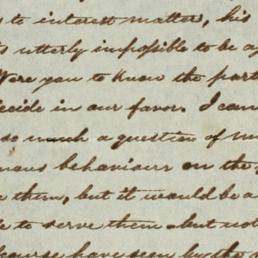 s to interest matter, his
is utterly impossible to be a
Were you to know the part
decide in our favor. I can
so much a question of m
nous behaviours on the
e them, but it would be a
le to serve them but not
course have seen by the